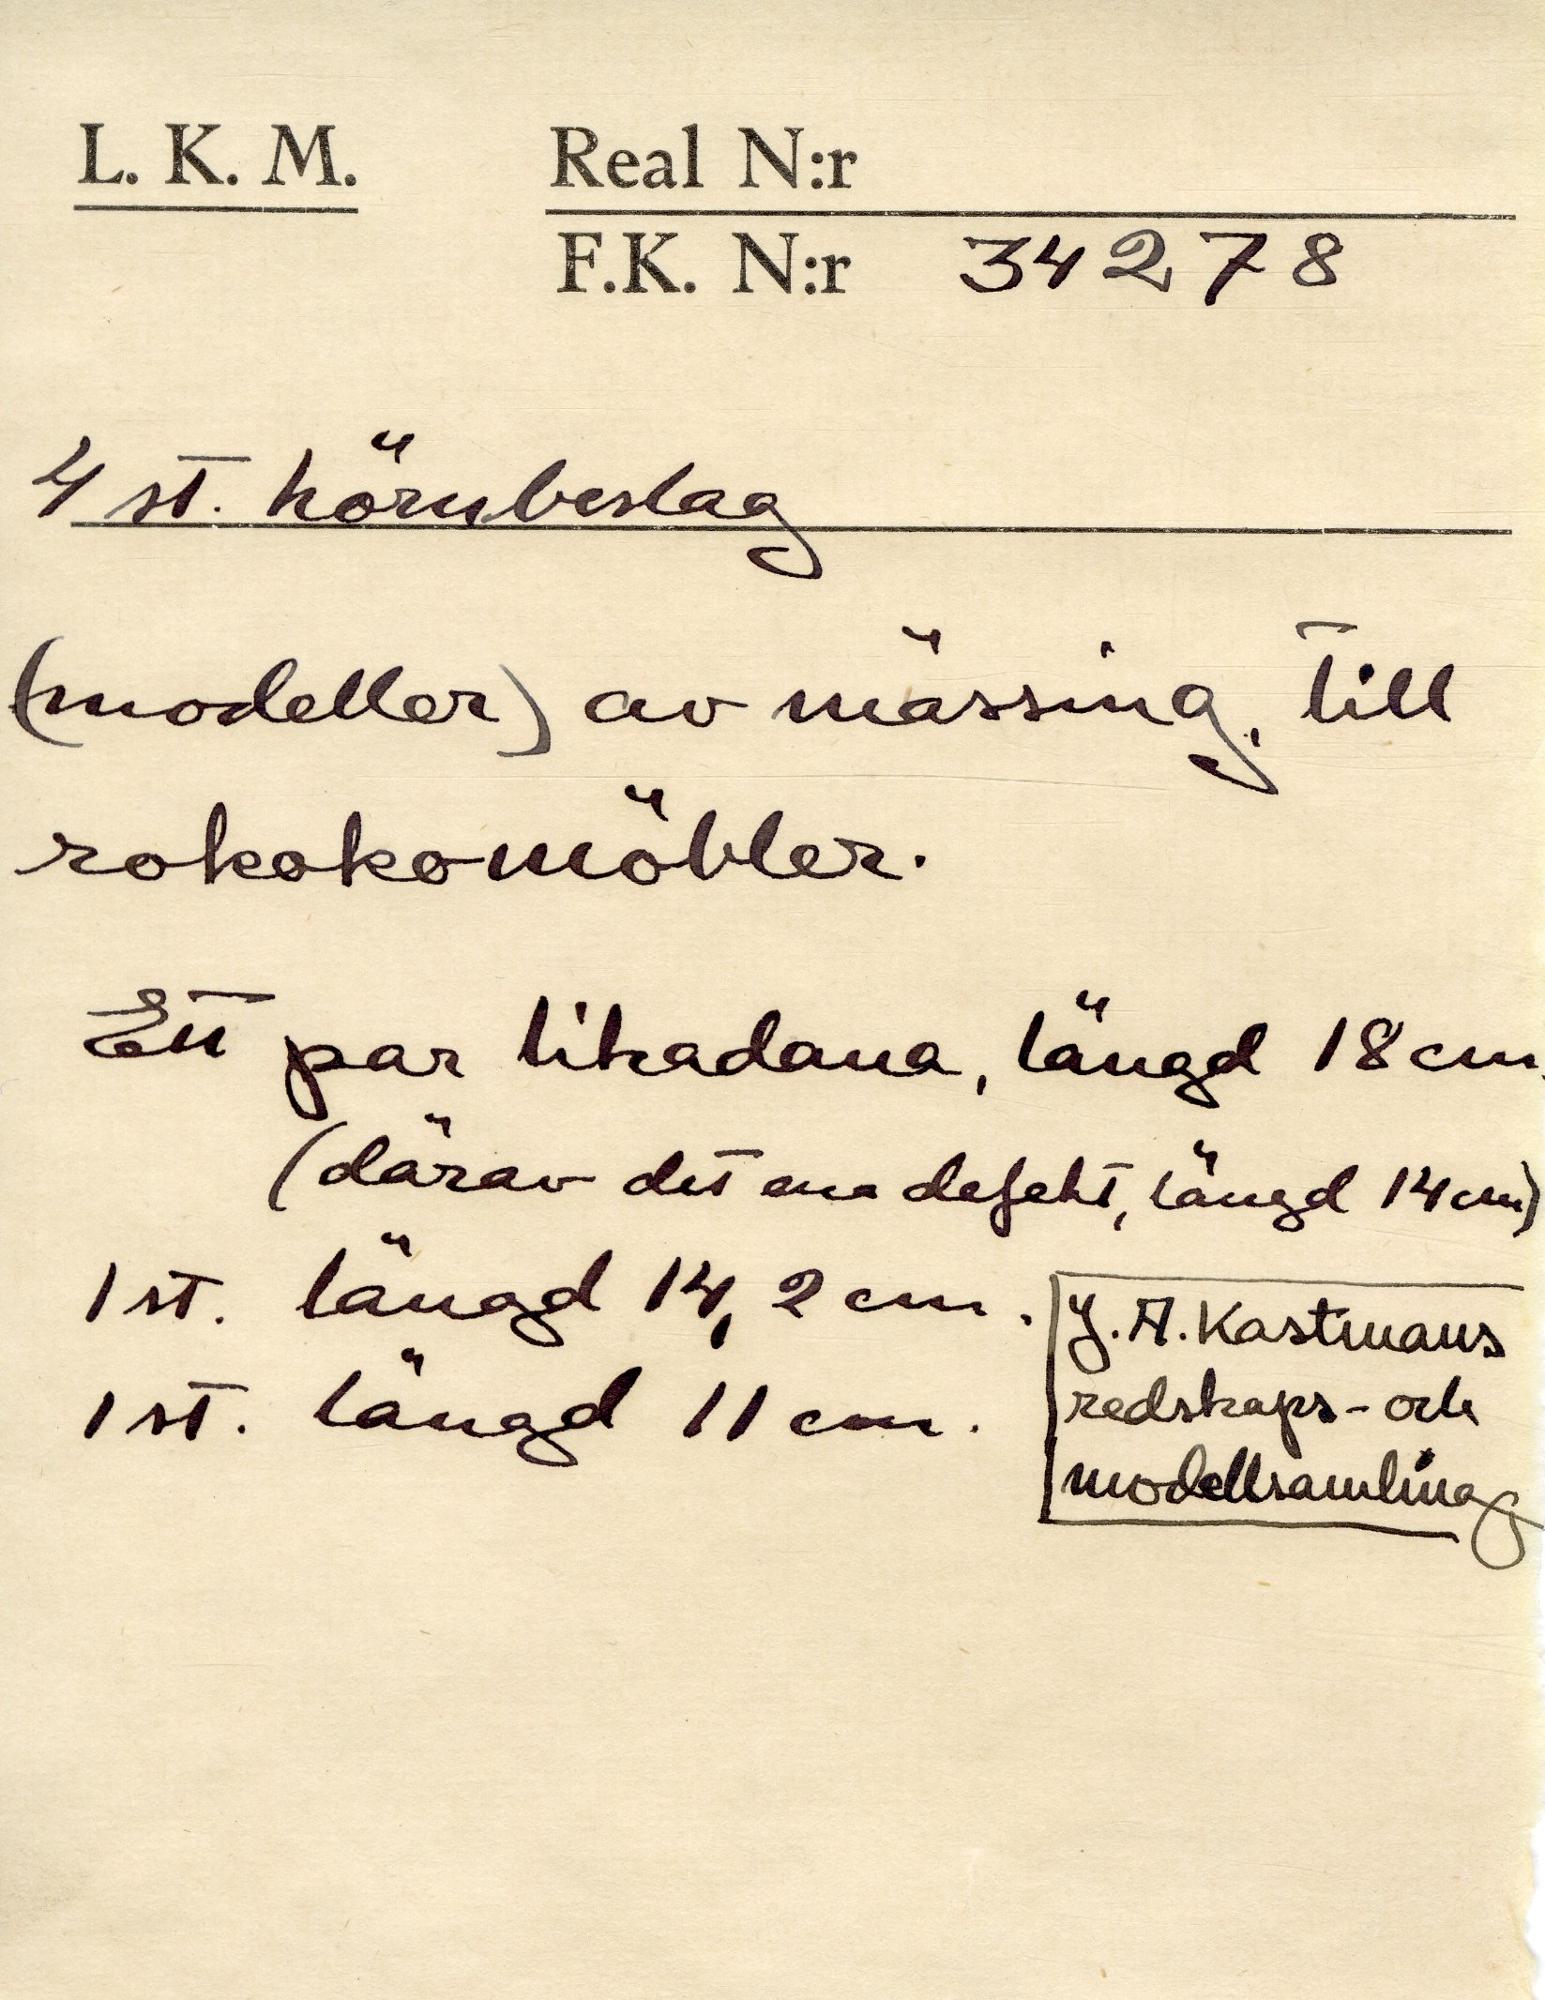 L. K. M. Real N:r
F.K. N:r 34278
4 st. hörnbeslag
(modeller) av mässing, till
rokokomöbler.
Ett par likadana, längd 18 cm.
(därav det ena defekt, längd 14 cm)
1 st. längd 14,2 cm.
1 st. längd 11 cm.
J. A. Kastmans
redskaps- och
modellsamling